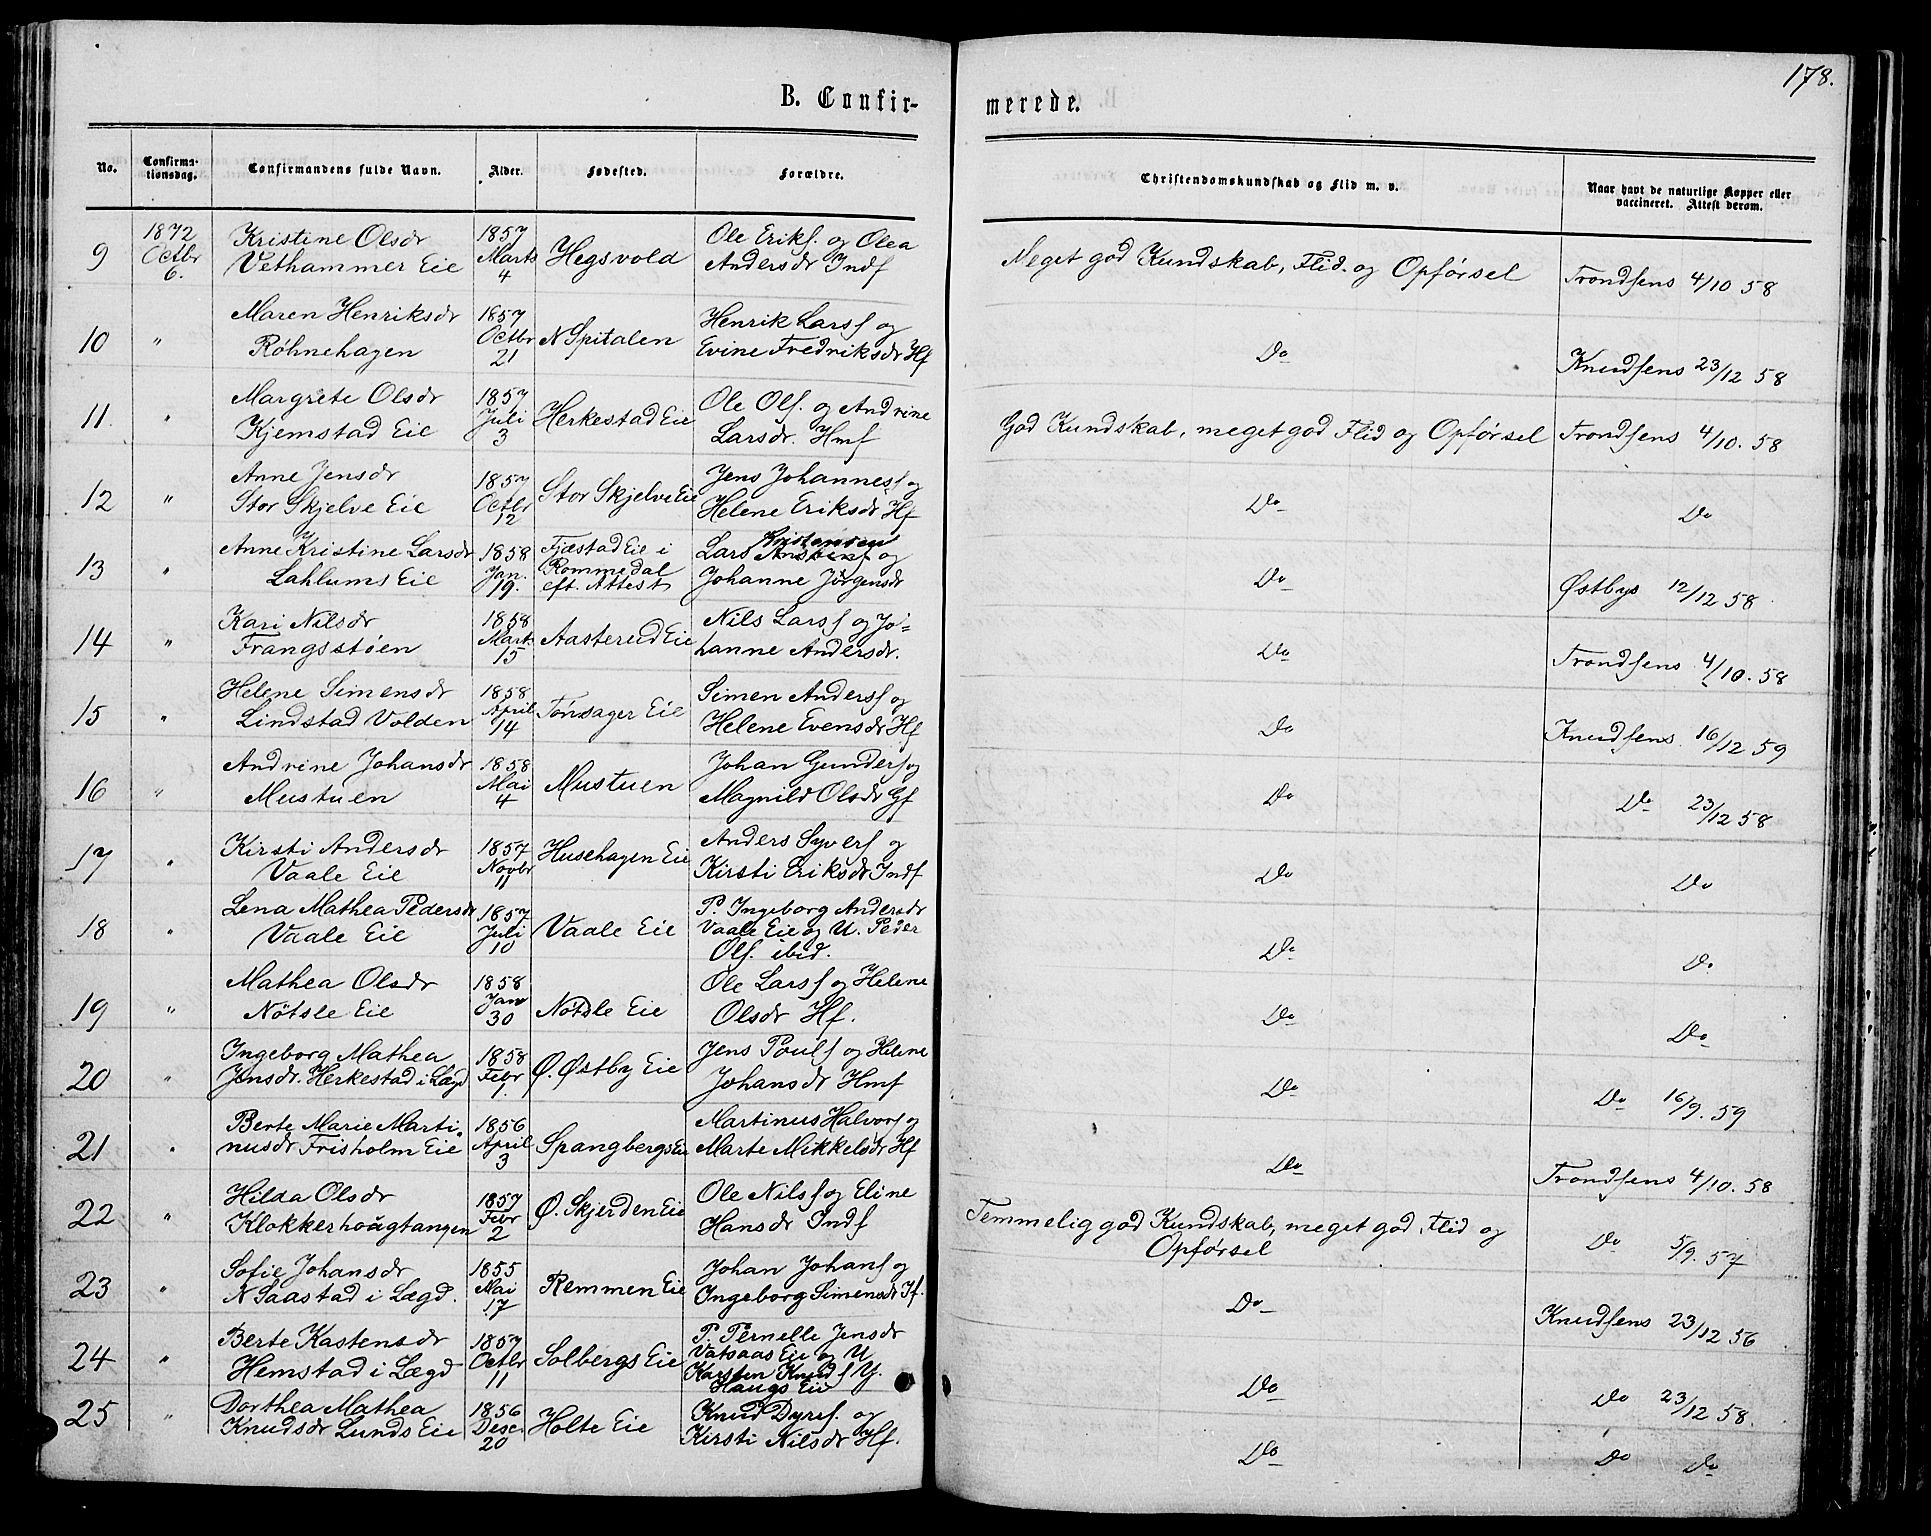 178.
B. Confir-
merede.
No.
Confirma-
tionsdag.
Confirmandens fulde Navn.
Alder.
Fødested.
Forældre.
Christendomskundskab og Flid m. v.
Naar havt de naturlige Kopper eller
vaccineret. Attest derom.
9 1872 Octbr 6. Kristine Olsdr 1857 Marts 4 Hegsvold Ole Eriks. og Olea
Vethammer Eie Andersdr Indf
Meget god Kundskab, Flid og Opførsel Trondsens 4/10 58
10 " Maren Henriksdr 1857 Octbr 21 N Spitalen Henrik Larsf og
Røhnehagen Evine Fredriksdr Hf
Do Knudsens 23/12 58
11. " Margrete Olsdr 1857 Juli 3 Herkestad Eie Ole Olf. og Andrine
Kjemstad Eie Larsdr. Hmf
God Kundskab, meget god Flid og Opførsel Trondsens 4/10. 58
12 " Anne Jensdr 1857 Octbr 12 Stor Skjelve Eie Jens Johannesf og
Stor Skjelve Eie Helene Eriksdr Hf
Do Do
13 " Anne Kristine Larsdr 1858 Jan. 19. Tjæstad Eie i Lars Kristensen og
Lahlums Eie Rommedal Johanne Jörgensdr
eft. Attest
Do Østbys 12/12 58.
14 " Kari Nilsdr 1858 Mart. 15 Aasterud Eie Nils Larsf og Jo=
Frangsstøen hanne Andersdr.
Do Trondsens 4/10. 58
15 " Helene Simensdr 1858 April 14 Tönsager Eie Simen Andersf og
Lindstad Volden Helene Evensdr Hf
Do Knudsens 16/12 59
16 " Andrine Johansdr 1858 Mai 4 Mustuen Johan Gundersf og
Mustuen Magnild Olsdr Gf
Do Do 23/12 58
17 " Kirsti Andersdr 1857 Novbr 11 Husehagen Eie Anders Syverf og
Vaale Eie Kirsti Eriksdr Indf
Do Do
18 " Lena Mathea Pedersdr 1857 Juli 10 Vaale Eie P. Ingeborg Andersdr
Vaale Eie Vaale Eie og U. Peder
Olf. ibid.
Do Do
19 " Mathea Olsdr 1858 Jan 30 Nøtsle Eie Ole Larsf og Helene
Nötsle Eie Olsdr Hf.
Do Do
20 " Ingeborg Mathea 1858 Febr 1. Ø. Østby Eie Jens Poulf og Helene
Jensdr. Herkestad i Lægd Johansdr Hmf
Do Do 16/9. 59
21 " Berte Marie Marti- 1856 April 3 Spangbergs Eie Martinus Halvorf og
nusdr Frisholm Eie Marte Mikkelsdr Hf
Do Trondsens 4/10. 58
22 " Hilda Olsdr 1857 Febr 2 Ø. Skjerden Eie Ole Nilsf og Eline
Klokkerhougtangen Hansdr Indf
Temmelig god Kundskab, meget god Flid og
Opførsel
Do 5/9. 57
23 " Sofie Johansdr 1855 Mai 17 Remmen Eie Johan Johanf og
N Saastad i Lægd. Ingeborg Simensdr If.
Do Knudsens 23/12 56
24 " Berte Kastensdr 1857 Octbr 11 Solbergs Eie P. Pernelle Jensdr
Hemstad i Lægd Vatsaas Eie og U
Karsten Knudf Y.
Haugs Eie
Do Do 23/12 58.
25 " Dorthea Mathea 1856 Desc. 20 Holte Eie Knud Dyref. og
Knudsdr Lunds Eie Kirsti Nilsdr Hf.
Do Do Do